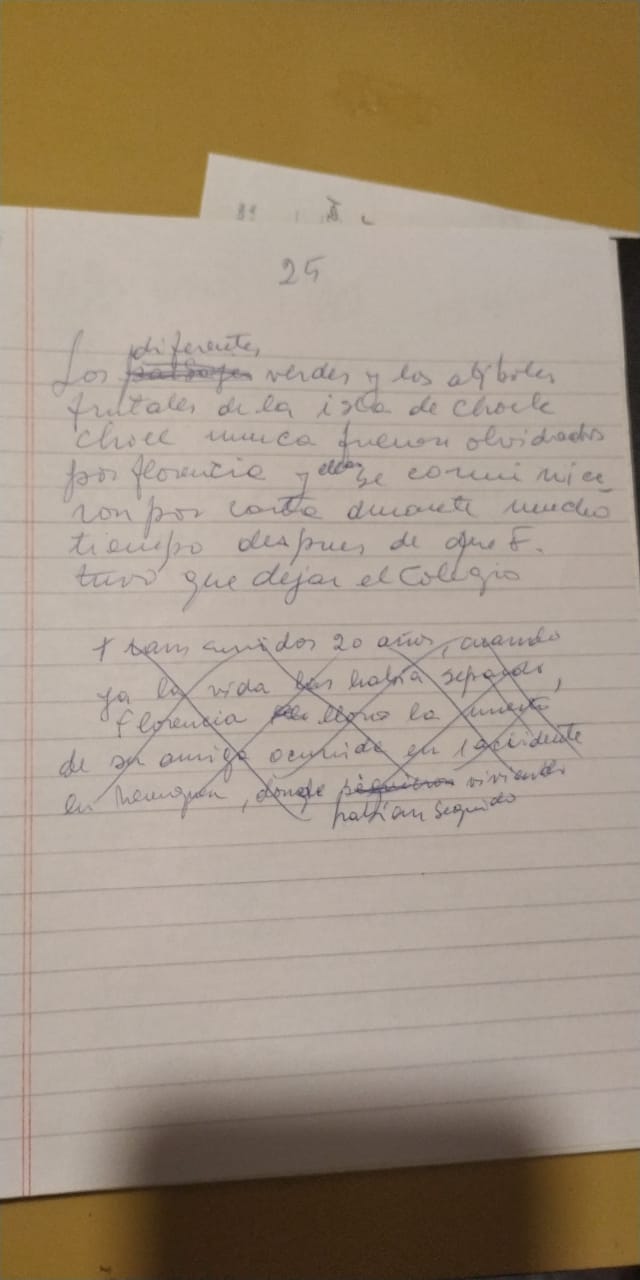 25
diferentes
Los paisajes verdes y los arboles
frutales de la isla de choele
choel nunca fueron olvidados
por florencia y ellas se comunica
ron por carta durante mucho
tiempo despues de que F.
tuvo que dejar el Colegio
20 años, cuando
ya la vida las habia separado,
florencia lloró la muerte
de su amiga ocurrida en 1 accidente
en Neuquen, donde siguieron viviendo
habian seguido